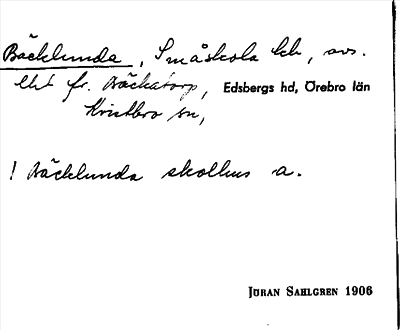 Bäcklunda, Småskola lch, avs.
lht fr. Bäckatorp, Edsbergs hd, Örebro län
Kvistbro sn,
! Bäcklunda skolhus a.
JÖRAN SAHLGREN 1906